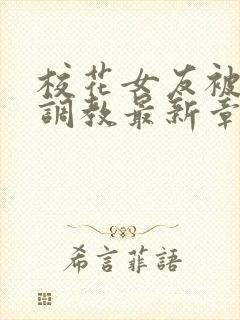 校花女友被
調教最新章
希言菲語